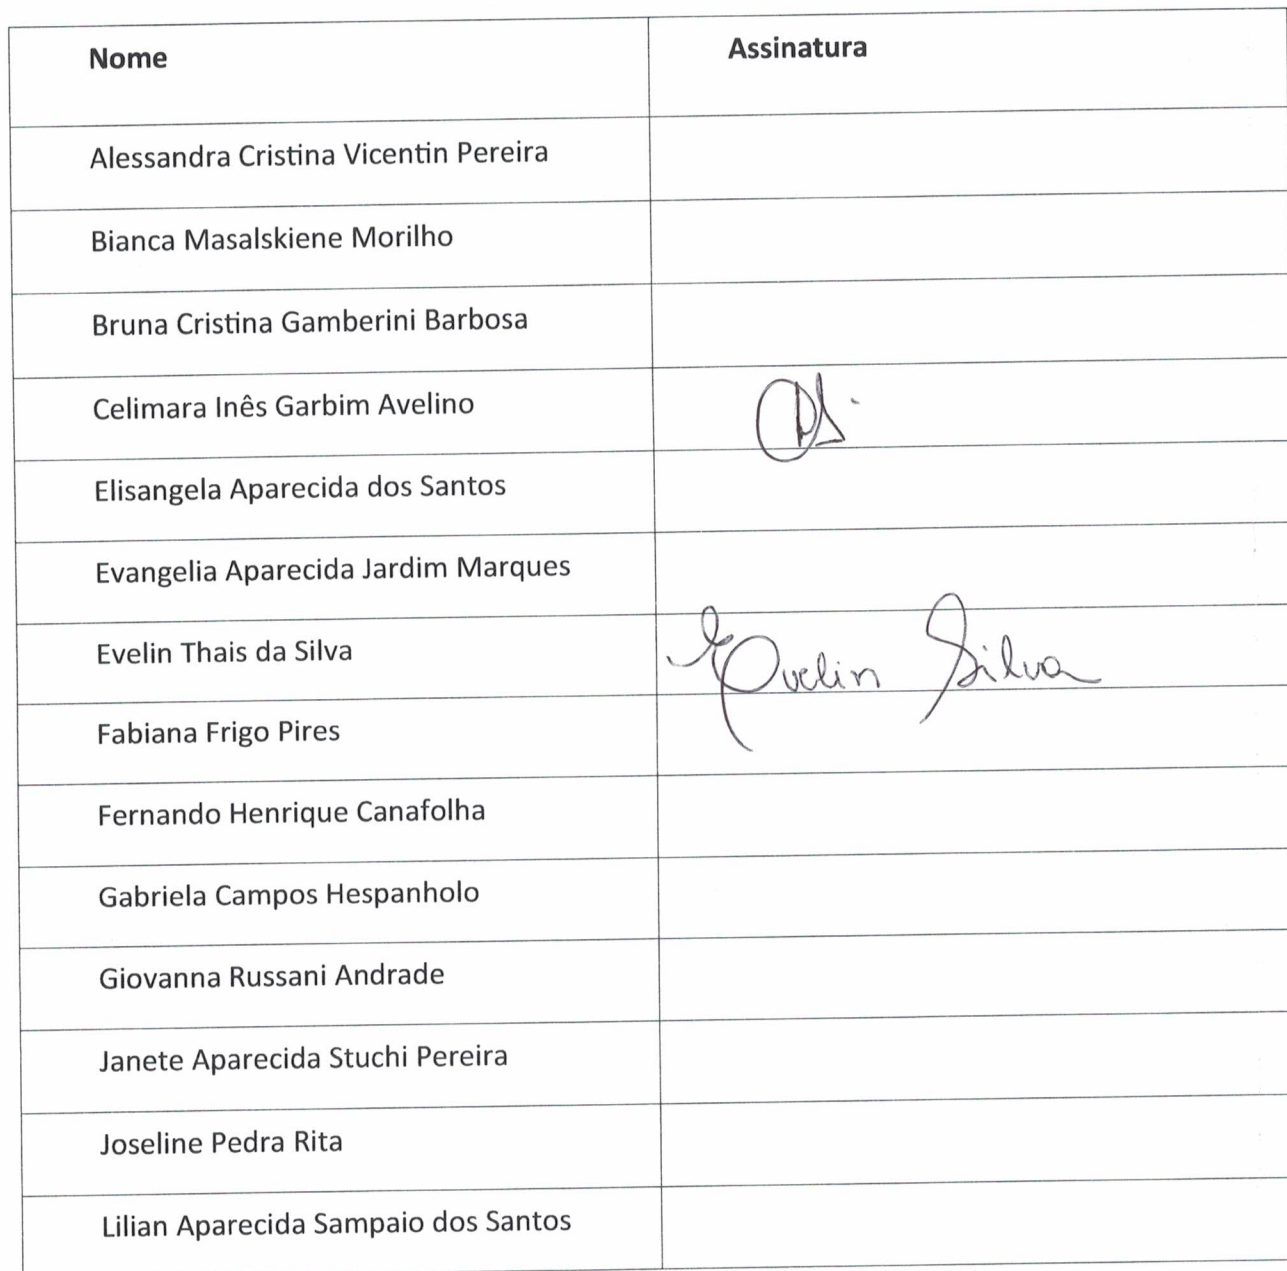 Nome Assinatura
Alessandra Cristina Vicentin Pereira
Bianca Masalskiene Morilho
Bruna Cristina Gamberini Barbosa
Celimara Inês Garbim Avelino
Elisangela Aparecida dos Santos
Evangelia Aparecida Jardim Marques
Evelin Thais da Silva Evelin Silva
Fabiana Frigo Pires
Fernando Henrique Canafolha
Gabriela Campos Hespanholo
Giovanna Russani Andrade
Janete Aparecida Stuchi Pereira
Joseline Pedra Rita
Lilian Aparecida Sampaio dos Santos